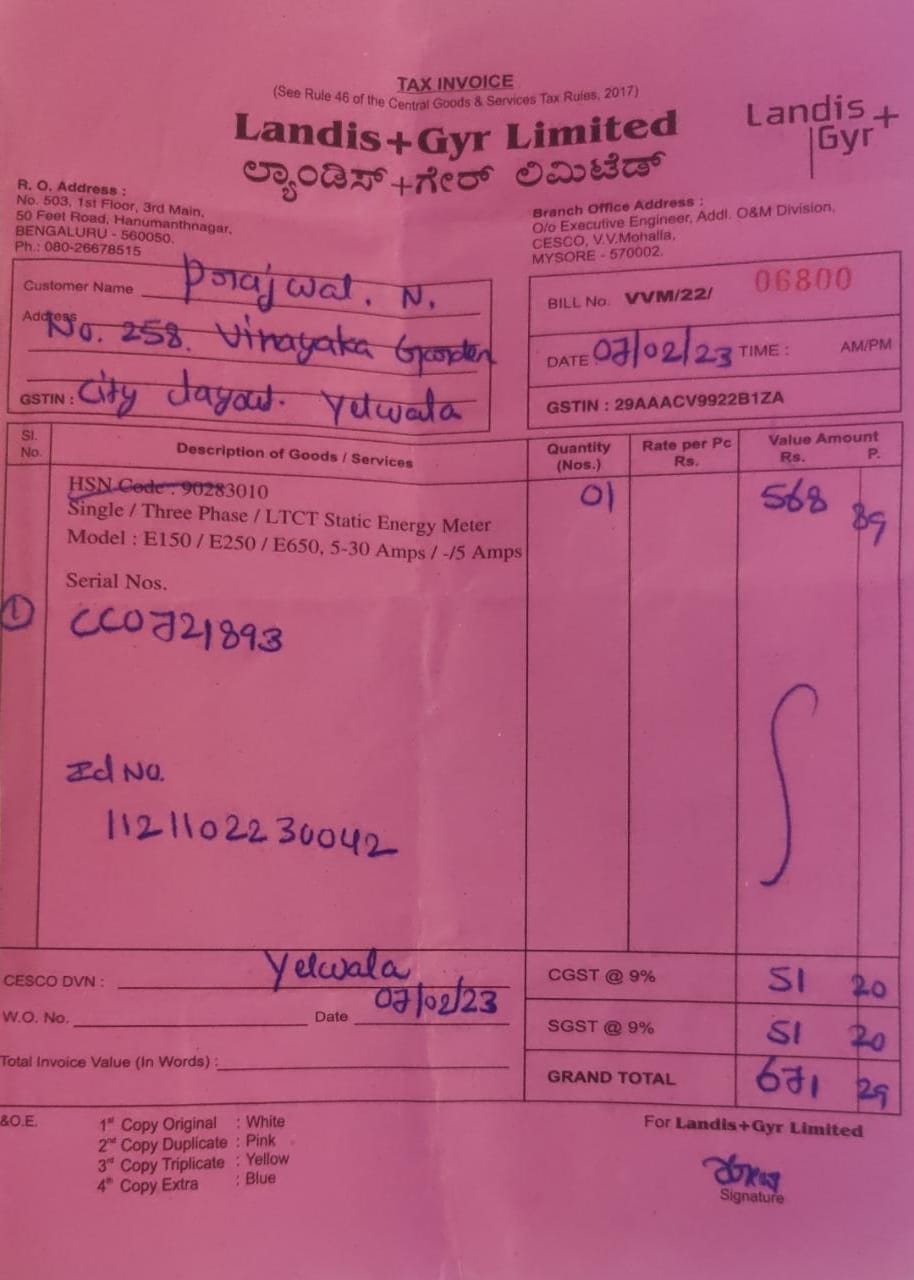 TAX INVOICE
(See Rule 46 of the Central Goods & Services Tax Rules, 2017)
Landis+Gyr Limited
ಲ್ಯಾಂಡಿಸ್+ಗೇರ್ ಲಿಮಿಟೆಡ್
Landis+
Gyr
R. O. Address :
No. 503, 1st Floor, 3rd Main,
50 Feet Road, Hanumanthnagar,
BENGALURU - 560050.
Ph.: 080-26678515
Branch Office Address :
O/o Executive Engineer, Addl. O&M Division,
CESCO, V.V.Mohalla,
MYSORE - 570002.
Customer Name Prajwal. N.
Address No. 258. Vinayaka Garden
GSTIN : City Layout. Yelwala
BILL No. VVM/22/ 06800
DATE : 07/02/23 TIME : AM/PM
GSTIN : 29AAACV9922B1ZA
Sl. No. Description of Goods / Services Quantity (Nos.) Rate per Pc Rs. Value Amount Rs. P.
HSN Code : 90283010 01 568 89
Single / Three Phase / LTCT Static Energy Meter
Model : E150 / E250 / E650, 5-30 Amps / -/5 Amps
Serial Nos.
1 CC0721893
Id No.
1121102230042
CESCO DVN : Yelwala
W.O. No. Date 07/02/23
Total Invoice Value (In Words) :
CGST @ 9% 51 20
SGST @ 9% 51 20
GRAND TOTAL 671 29
&O.E.
1st Copy Original : White
2nd Copy Duplicate : Pink
3rd Copy Triplicate : Yellow
4th Copy Extra : Blue
For Landis+Gyr Limited
Signature